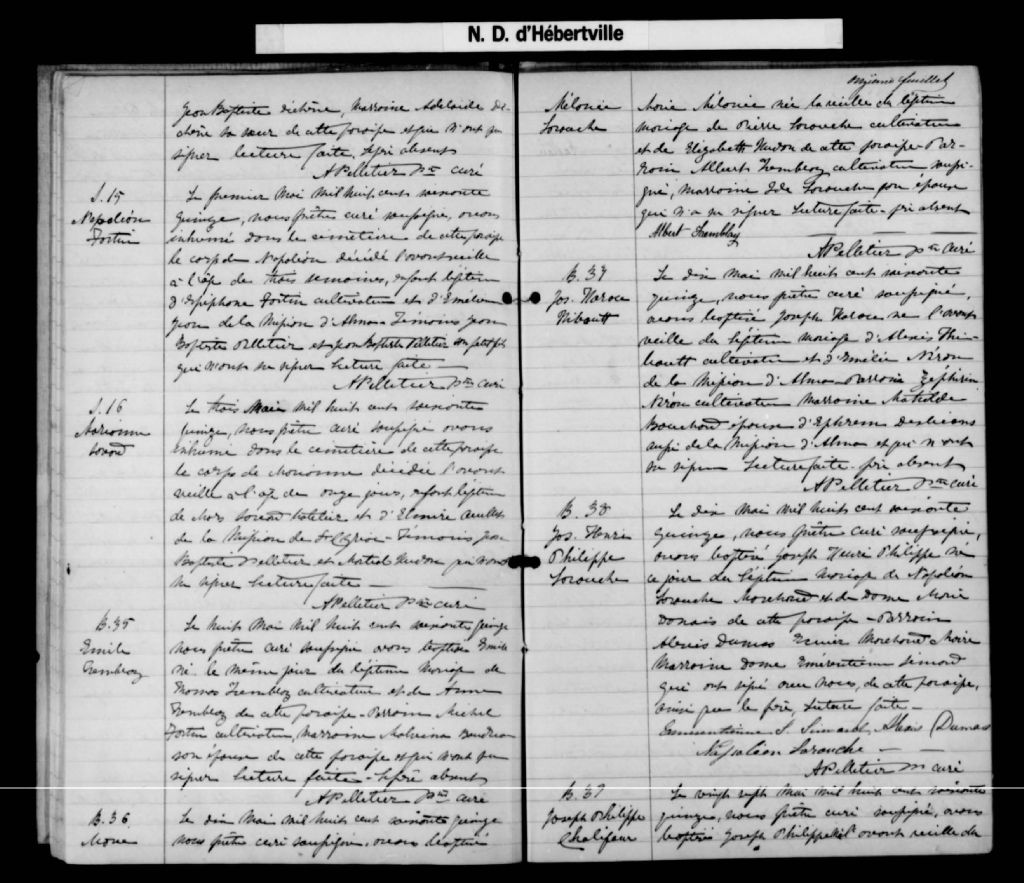 N. D. d'Hébertville
onzième feuillet
Jean Baptiste dichêne, Marraine Adelaide dé-
chêne sa sœur de cette paroisse et qui n'ont pu
signer lecture faite, le père absent
A Pelletier Ptre curé
S. 15
Napoléon
Fortin
Le premier Mai mil huit cent soixante
quinze, nous prêtre curé soussigné, avons
inhumé dans le cimetière de cette paroisse
le corps de Napoléon décédé l'avant veille
à l'âge de trois semaines, enfant légitime
d'Epiphane Fortin cultivateur et d'Emilie
Jean de la Mission d'Alma - Témoins Jean
Baptiste Pelletier et Jean Baptiste Pelletier
qui n'ont su signer lecture faite —
A Pelletier Ptre curé
S. 16
Le trois Mai mil huit cent soixante
quinze, nous prêtre curé soussigné avons
inhumé dans le cimetière de cette paroisse
le corps de décédée l'avant
veille à l'âge de onze jours, enfant légitime
de et d'Elmire Ouellet
de la Mission de - Témoins, Jean
Baptiste Pelletier et Martial Hudon qui n'ont
su signer lecture faite —
A Pelletier Ptre curé
B. 35
Emile
Tremblay
Le huit Mai mil huit cent soixante quinze
nous prêtre curé soussigné avons baptisé Emile
né le même jour du légitime Mariage de
Thomas Tremblay cultivateur et de Anne
Tremblay de cette paroisse - Parrain Michel
Fortin cultivateur, Marraine Malvina Boudreau
son épouse de cette paroisse et qui n'ont pu
signer lecture faite - le père absent
A Pelletier Ptre curé
B. 36
Marie
Le dix Mai mil huit cent soixante quinze
nous prêtre curé soussigné, avons baptisé
Mélonée
Larouche
Marie Mélonée née la veille du légitime
mariage de Pierre Larouche cultivateur
et de Elizabeth Hudon de cette paroisse - Par-
rain Albert Tremblay cultivateur soussi-
gné, marraine Larouche son épouse
qui n'a su signer lecture faite - père absent
Albert Tremblay
A Pelletier Ptre curé
B. 37
Jos. Horace
Thibault
Le dix Mai mil huit cent soixante
quinze, nous prêtre curé soussigné,
avons baptisé Joseph Horace né l'avant
veille du légitime mariage d'Alexis Thi-
bault cultivateur et d'Emélie Néron
de la Mission d'Alma - Parrain Zéphirin
Néron cultivateur marraine Mathilde
Bouchard épouse d'Ephrem
aussi de la Mission d'Alma et qui n'ont
su signer lecture faite - père absent
A Pelletier Ptre curé
B. 38
Jos. Henri
Philippe
Larouche
Le dix Mai mil huit cent soixante
quinze, nous prêtre curé soussigné,
avons baptisé Joseph Henri Philippe né
ce jour du légitime Mariage de Napoléon
Larouche Marchand et de dame Marie
Danais de cette paroisse - Parrain
Alexis Dumas Ecuier Marchand
Marraine dame Emérentienne Simard
qui ont signé avec nous, de cette paroisse,
ainsi que le père, lecture faite —
Emmerentienne S. Simard, Alexis Dumas
Napoléon Larouche —
A Pelletier Ptre curé
B. 39
Joseph Philippe
Chalifour
Le vingt sept Mai mil huit cent soixante
quinze, nous prêtre curé soussigné, avons
baptisé Joseph Philippe né l'avant veille du